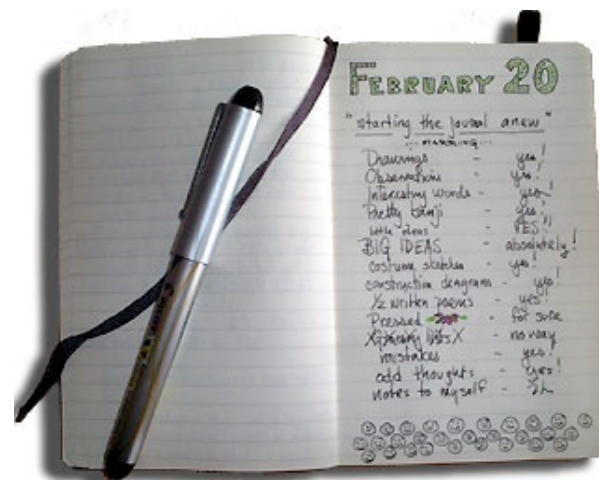 FEBRUARY 20
"starting the journal anew"
Drawings - yes!
Observations - yes!
Interesting words - yes!
Pretty kanji - yes!
little ideas - YES!!
BIG IDEAS - absolutely!
costume sketches - yes!
construction diagrams - yep!
1/2 written poems - yes!
Pressed - for sure
lists X - no way
mistakes - yes!
odd thoughts - yes!
notes to myself -